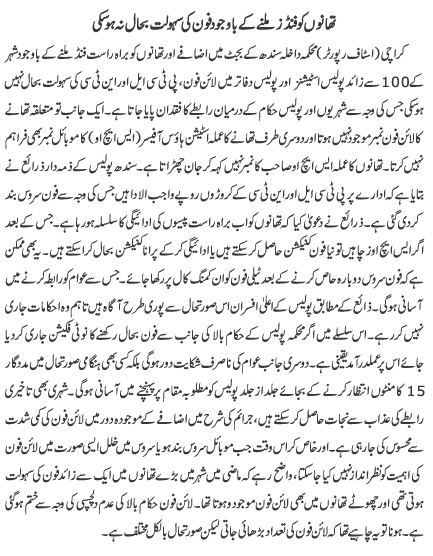 تھانوں کو فنڈز ملنے کے باوجود فون کی سہولت بحال نہ ہو سکی
کراچی (اسٹاف رپورٹر) محکمہ داخلہ سندھ کے بجٹ میں اضافے اور تھانوں کو براہ راست فنڈ ملنے کے باوجود شہر
کے 100 سے زائد پولیس اسٹیشنز اور پولیس دفاتر میں لائن فون، پی ٹی سی ایل اور این ٹی سی کی سہولت بحال نہیں
ہو سکی جس کی وجہ سے شہریوں اور پولیس حکام کے درمیان رابطے کا فقدان پایا جاتا ہے۔ ایک جانب تو متعلقہ تھانے
کا لائن فون نمبر موجود نہیں ہوتا اور دوسری طرف تھانے کا عملہ اسٹیشن ہاؤس آفیسر (ایس ایچ او) کا موبائل نمبر بھی فراہم
نہیں کرتا۔ تھانوں کا عملہ ایس ایچ او صاحب کا نمبر نہیں کہہ کر جان چھڑاتا ہے۔ سندھ پولیس کے ذمہ دار ذرائع نے
بتایا ہے کہ ادارے پر پی ٹی سی ایل اور این ٹی سی کے کروڑوں روپے واجب الادا ہیں جس کی وجہ سے فون سروس بند
کر دی گئی ہے۔ ذرائع نے دعویٰ کیا کہ تھانوں کو اب براہ راست پیسوں کی ادائیگی کا سلسلہ ہو رہا ہے۔ جس کے بعد
اگر ایس ایچ اوز چاہیں تو نیا فون کنکشن حاصل کر سکتے ہیں یا ادائیگی کر کے پرانا کنکیشن بحال کرا سکتے ہیں۔ یہ بھی ممکن
ہے کہ فون سروس دوبارہ حاصل کرنے کے بعد ٹیلی فون کو ان کمنگ کال پر رکھا جائے۔ جس سے عوام کو رابطہ کرنے میں
آسانی ہو گی۔ ذرائع کے مطابق پولیس کے اعلیٰ افسران اس صورتحال سے پوری طرح آگاہ ہیں تاہم وہ احکامات جاری
نہیں کر رہے۔ اس سلسلے میں اگر محکمہ پولیس کے حکام بالا کی جانب سے فون بحال رکھنے کا نوٹی فکیشن جاری کر دیا
جائے اس پر عملدرآمد یقینی ہے۔ دوسری جانب عوام کی ناصرف شکایت دور ہو گی بلکہ کسی بھی ہنگامی صورتحال میں مددگار
15 کا منٹوں انتظار کرنے کے بجائے جلد از جلد پولیس کو مطلوبہ مقام پر پہنچنے میں آسانی ہو گی۔ شہری بھی تاخیری
رابطے کی عذاب سے نجات حاصل کر سکتے ہیں، جرائم کی شرح میں اضافے کے موجودہ دور میں لائن فون کی کمی شدت
سے محسوس کی جا رہی ہے۔ اور خاص کر اس وقت جب موبائل سروس بند ہو یا سروس میں خلل ایسی صورت میں لائن فون
کی اہمیت کو نظر انداز نہیں کیا جا سکتا، واضح رہے کہ ماضی میں شہر میں بڑے تھانوں میں ایک سے زائد فون کی سہولت
ہوتی تھی اور چھوٹے تھانوں میں بھی لائن فون موجود ہوتا تھا۔ لائن فون حکام بالا کی عدم دلچسپی کی وجہ سے ختم ہو گئی
ہے۔ ہونا تو یہ چاہیے تھا کہ لائن فون کی تعداد بڑھائی جاتی لیکن صورتحال بالکل مختلف ہے۔